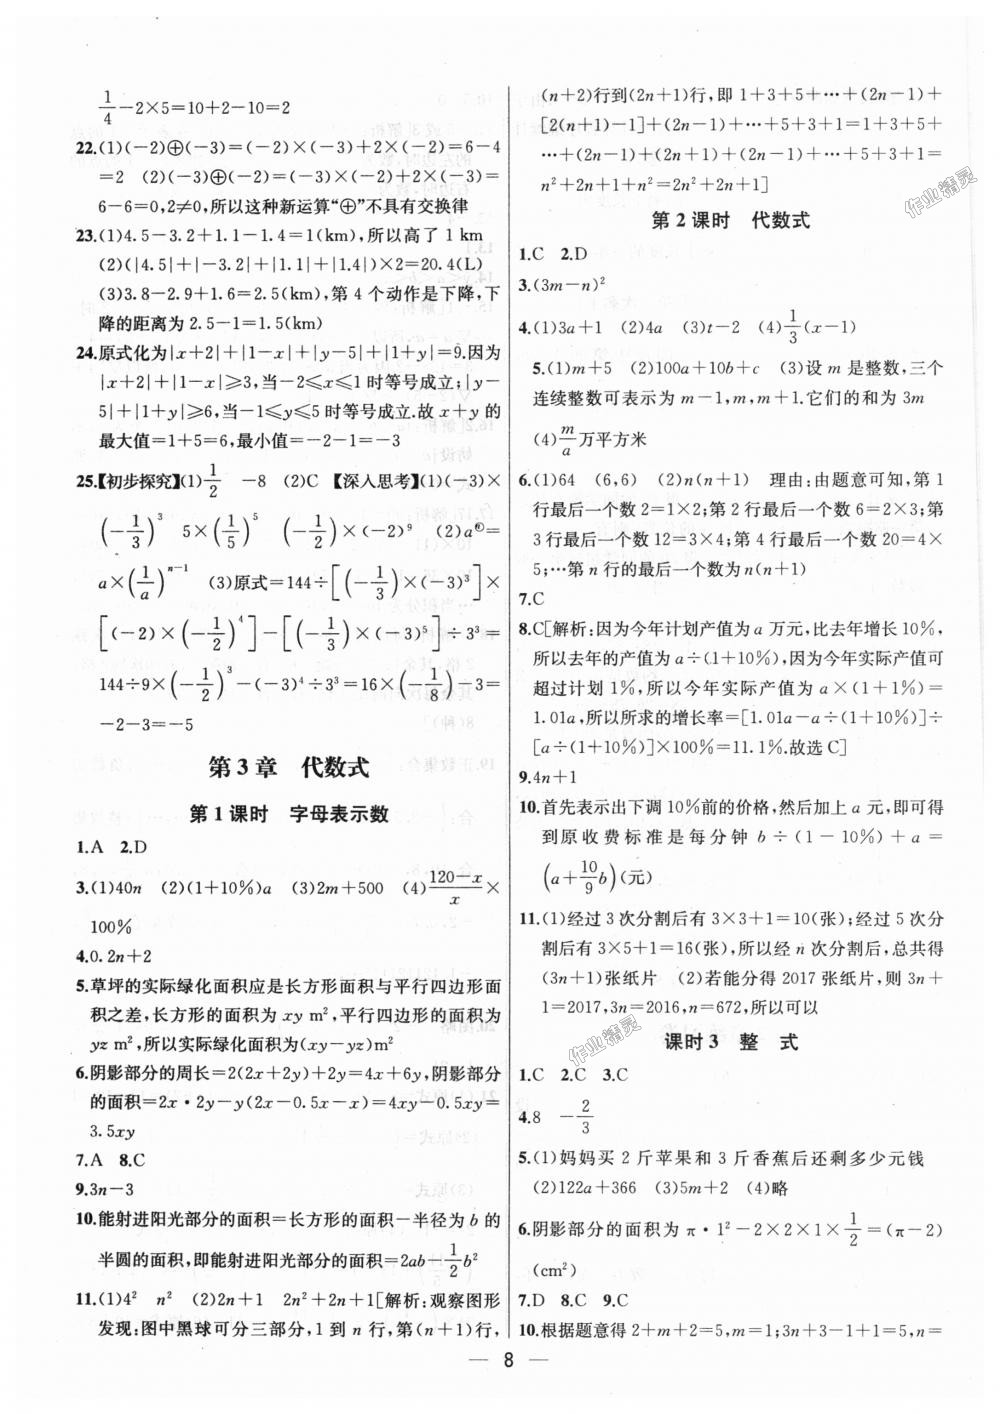 1/4－2×5＝10＋2－10＝2
22.(1)(－2)⊕(－3)＝(－2)×(－3)＋2×(－3)＝6－4
＝2　(2)(－3)⊕(－2)＝(－3)×(－2)＋2×(－3)＝
6－6＝0,2≠0,所以这种新运算“⊕”不具有交换律
23.(1)4.5－3.2＋1.1－1.4＝1(km),所以高了 1 km
(2)(|4.5|＋|－3.2|＋|1.1|＋|1.4|)×2＝20.4(L)
(3)3.8－2.9＋1.6＝2.5(km),第 4 个动作是下降,下
降的距离为 2.5－1＝1.5(km)
24.原式化为|x＋2|＋|1－x|＋|y－5|＋|1＋y|＝9.因为
|x＋2|＋|1－x|≥3,当－2≤x≤1 时等号成立;|y－
5|＋|1＋y|≥6,当－1≤y≤5 时等号成立.故 x＋y 的
最大值＝1＋5＝6,最小值＝－2－1＝－3
25.【初步探究】(1)1/2　－8　(2)C　【深入思考】(1)(－3)×
(－1/3)³　5×(1/5)⁵　(－1/2)×(－2)⁹　(2)aⓝ＝
a×(1/a)ⁿ⁻¹　(3)原式＝144÷[(－1/3)×(－3)³]×
[(－2)×(－1/2)⁴]－[(－1/3)×(－3)⁵]÷3³＝
144÷9×(－1/2)³－(－3)⁴÷3³＝16×(－1/8)－3＝
－2－3＝－5
第 3 章　代数式
第 1 课时　字母表示数
1.A　2.D
3.(1)40n　(2)(1＋10%)a　(3)2m＋500　(4)(120－x)/x×
100%
4.0.2n＋2
5.草坪的实际绿化面积应是长方形面积与平行四边形面
积之差,长方形的面积为 xy m²,平行四边形的面积为
yz m²,所以实际绿化面积为(xy－yz)m²
6.阴影部分的周长＝2(2x＋2y)＋2y＝4x＋6y,阴影部分
的面积＝2x·2y－y(2x－0.5x－x)＝4xy－0.5xy＝
3.5xy
7.A　8.C
9.3n－3
10.能射进阳光部分的面积＝长方形的面积－半径为 b 的
半圆的面积,即能射进阳光部分的面积＝2ab－1/2b²
11.(1)4²　n²　(2)2n＋1　2n²＋2n＋1[解析:观察图形
发现:图中黑球可分三部分,1 到 n 行,第(n＋1)行,
(n＋2)行到(2n＋1)行,即 1＋3＋5＋…＋(2n－1)＋
[2(n＋1)－1]＋(2n－1)＋…＋5＋3＋1＝1＋3＋5＋
…＋(2n－1)＋(2n＋1)＋(2n－1)＋…＋5＋3＋1＝
n²＋2n＋1＋n²＝2n²＋2n＋1]
第 2 课时　代数式
1.C　2.D
3.(3m－n)²
4.(1)3a＋1　(2)4a　(3)t－2　(4)1/3(x－1)
5.(1)m＋5　(2)100a＋10b＋c　(3)设 m 是整数,三个
连续整数可表示为 m－1,m,m＋1.它们的和为 3m
(4)m/a万平方米
6.(1)64　(6,6)　(2)n(n＋1)　理由:由题意可知,第 1
行最后一个数 2＝1×2;第 2 行最后一个数 6＝2×3;第
3 行最后一个数 12＝3×4;第 4 行最后一个数 20＝4×
5;…第 n 行的最后一个数为 n(n＋1)
7.C
8.C[解析:因为今年计划产值为 a 万元,比去年增长 10%,
所以去年的产值为 a÷(1＋10%),因为今年实际产值可
超过计划 1%,所以今年实际产值为 a×(1＋1%)＝
1.01a,所以所求的增长率＝[1.01a－a÷(1＋10%)]÷
[a÷(1＋10%)]×100%＝11.1%.故选 C]
9.4n＋1
10.首先表示出下调 10%前的价格,然后加上 a 元,即可得
到原收费标准是每分钟 b÷(1－10%)＋a＝
(a＋10/9b)(元)
11.(1)经过 3 次分割后有 3×3＋1＝10(张);经过 5 次分
割后有 3×5＋1＝16(张),所以经 n 次分割后,总共得
(3n＋1)张纸片　(2)若能分得 2017 张纸片,则 3n＋
1＝2017,3n＝2016,n＝672,所以可以
课时 3　整　式
1.C　2.C　3.C
4.8　－2/3
5.(1)妈妈买 2 斤苹果和 3 斤香蕉后还剩多少元钱
(2)122a＋366　(3)5m＋2　(4)略
6.阴影部分的面积为 π·1²－2×2×1×1/2＝(π－2)
(cm²)
7.D　8.C　9.C
10.根据题意得 2＋m＋2＝5,m＝1;3n＋3－1＋1＝5,n＝
— 8 —
作业精灵
作业精灵